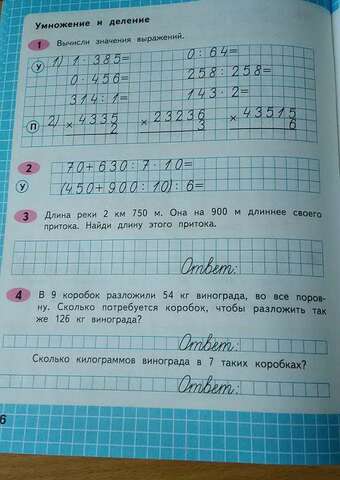 Умножение и деление
1 Вычисли значения выражений.
У 1) 1 · 385= 0 : 64=
0 · 456= 258 : 258=
314 : 1= 143 · 2=
П 2) × 4335 × 23236 × 43515
2 3 6
2 70+630 : 7 · 10=
У (450+900 : 10) : 6=
3 Длина реки 2 км 750 м. Она на 900 м длиннее своего
притока. Найди длину этого притока.
Ответ:
4 В 9 коробок разложили 54 кг винограда, во все поров-
ну. Сколько потребуется коробок, чтобы разложить так
же 126 кг винограда?
Ответ:
Сколько килограммов винограда в 7 таких коробках?
Ответ:
6